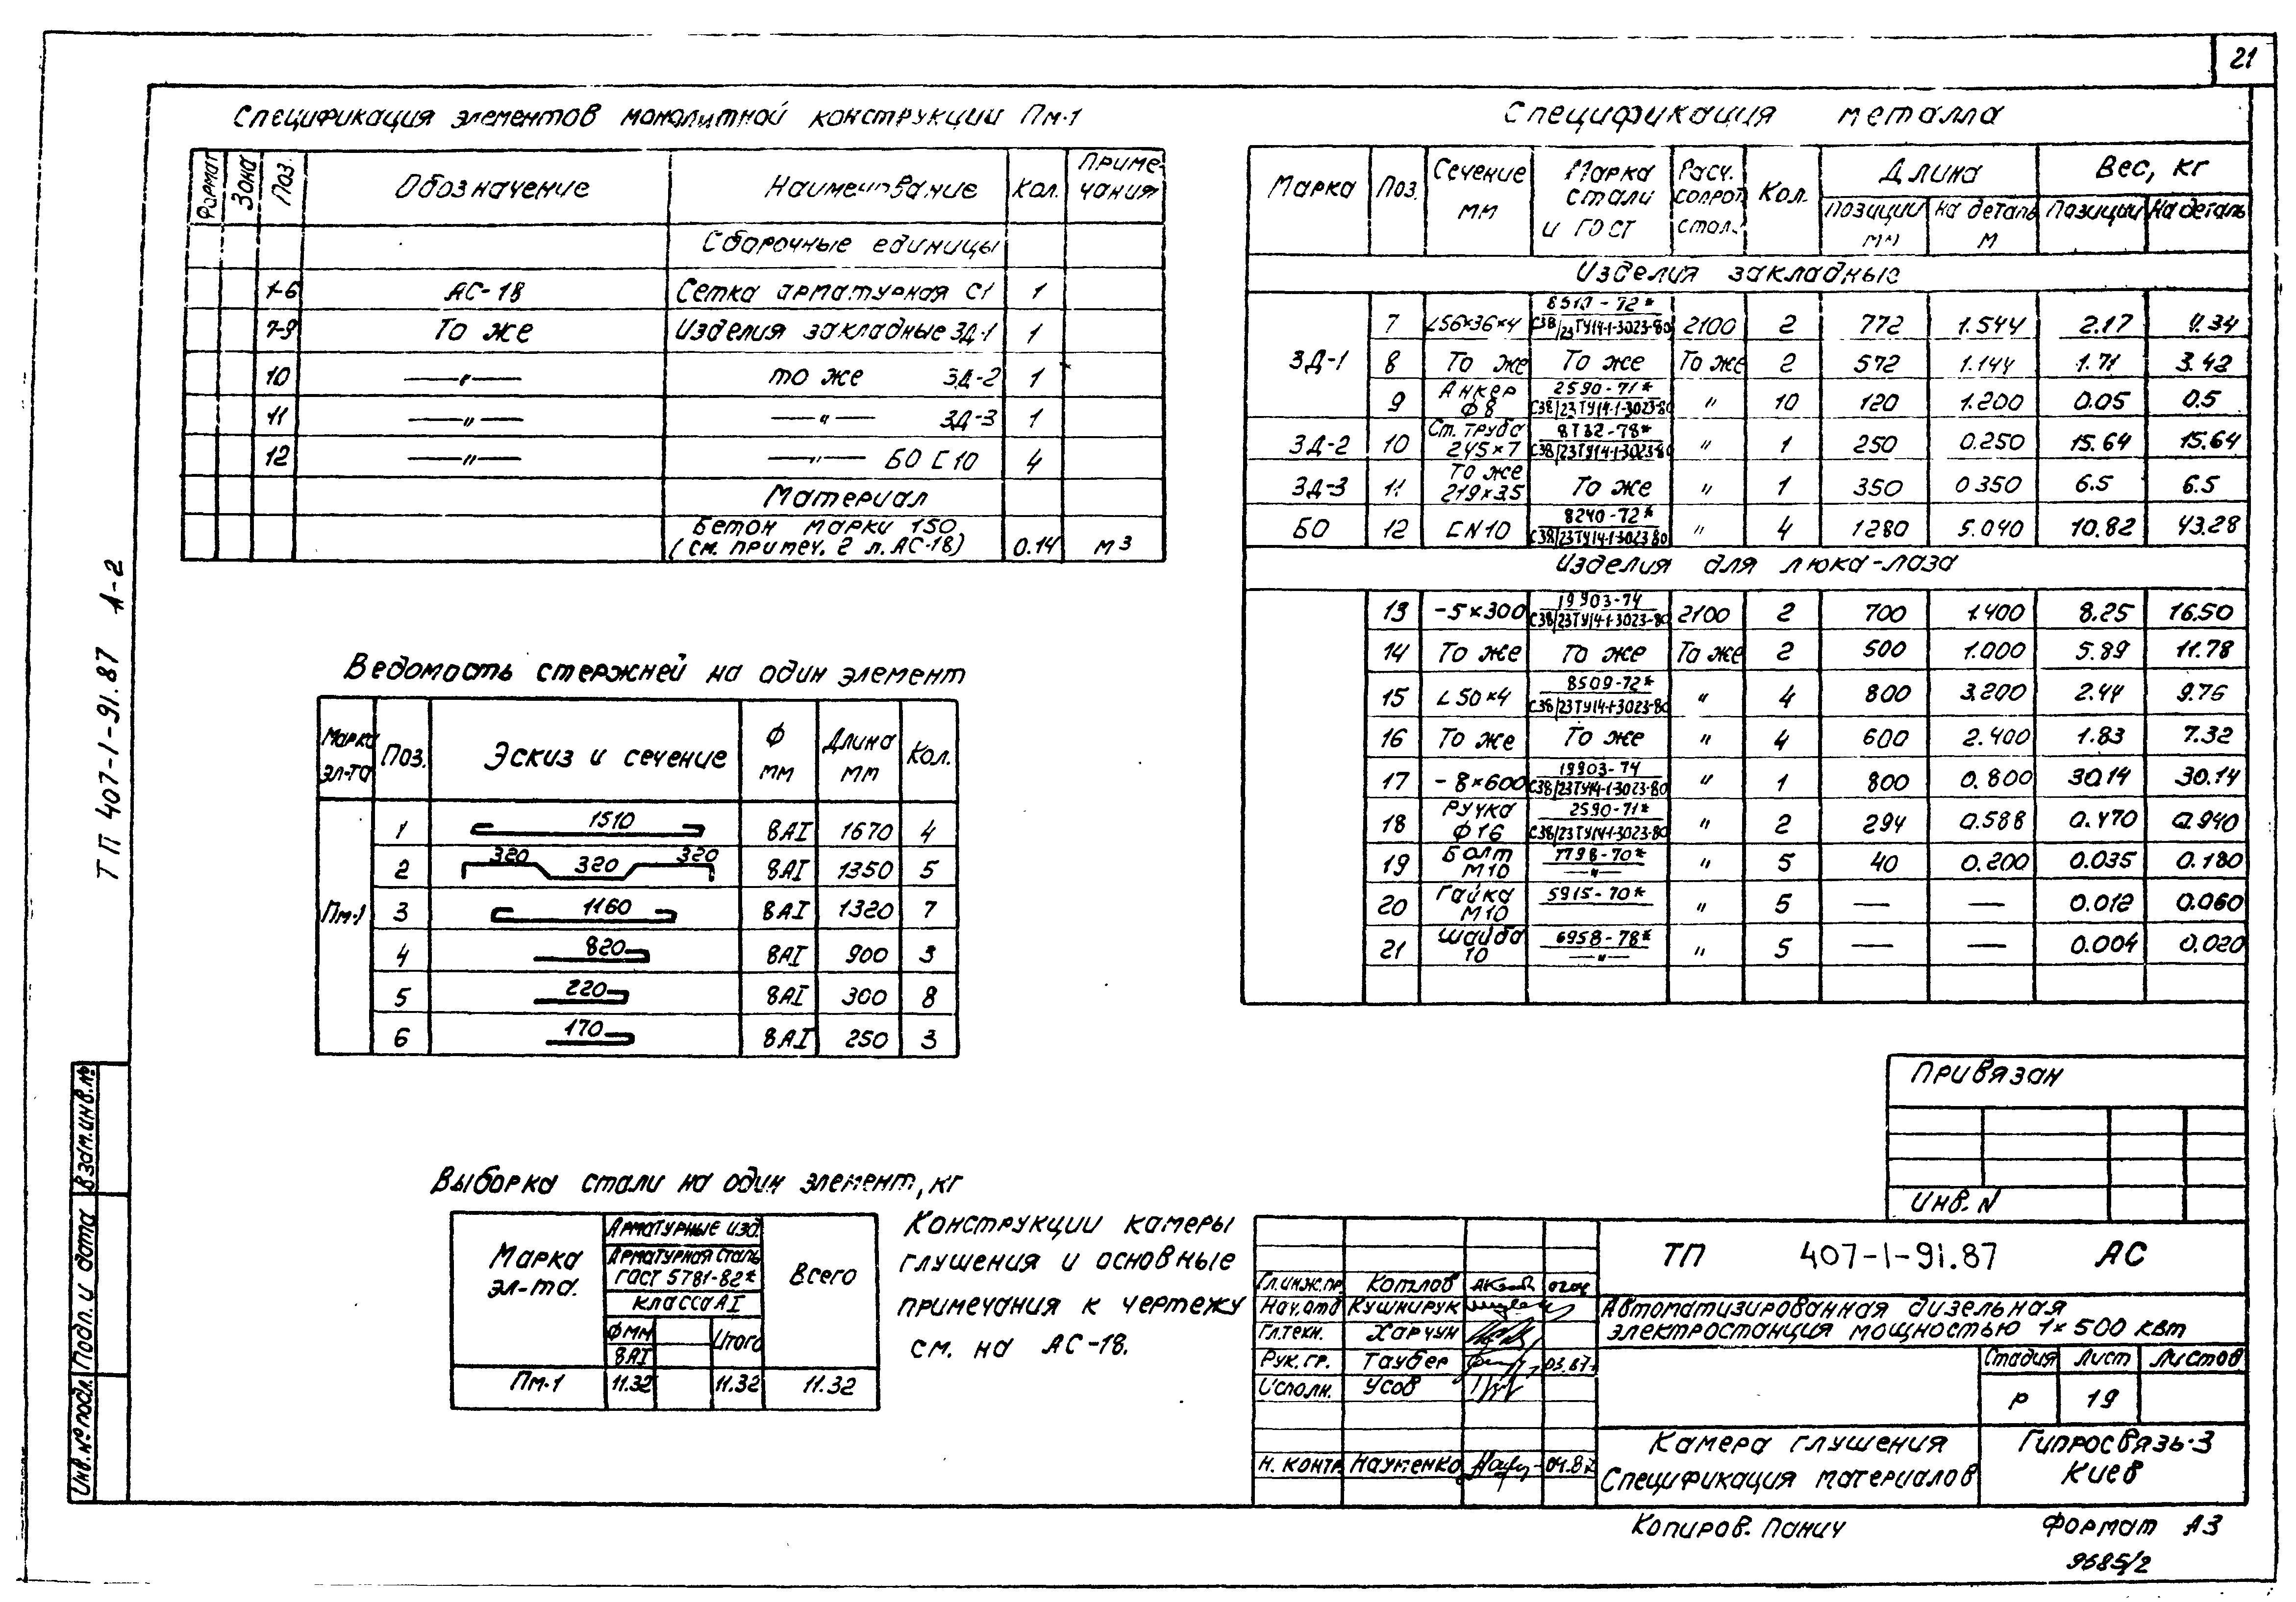 21
Спецификация элементов монолитной конструкции Пм-1
Формат Зона Поз. Обозначение Наименование Кол. Приме-чания
Сборочные единицы
1-6 АС-18 Сетка арматурная С1 1
7-9 То же Изделия закладные ЗД-1 1
10 —〃— то же ЗД-2 1
11 —〃— —〃— ЗД-3 1
12 —〃— —〃— БО [ 10 4
Материал
Бетон марки 150
(см. примеч. 2 л. АС-18) 0.14 м3
Ведомость стержней на один элемент
Марка эл-та Поз. Эскиз и сечение Ф мм Длина мм Кол.
Пм-1
1 1510 8АI 1670 4
2 320 320 320 8АI 1350 5
3 1160 8АI 1320 7
4 820 8АI 900 3
5 220 8АI 300 8
6 170 8АI 250 3
Выборка стали на один элемент, кг
Марка эл-та. Арматурные изд. Всего
Арматурная сталь
ГОСТ 5781-82*
класса АI
Фмм Итого
8АI
Пм-1 11.32 11.32 11.32
Конструкции камеры
глушения и основные
примечания к чертежу
см. на АС-18.
Спецификация металла
Марка Поз. Сечение мм Марка стали и ГОСТ Расч. сопрот. стол. Кол. Длина Вес, кг
позиции мм на деталь м Позиции На деталь
Изделия закладные
ЗД-1 7 L56×36×4 8510-72* С38/23ТУ14-1-3023-80 2100 2 772 1.544 2.17 4.34
8 То же То же То же 2 572 1.144 1.71 3.42
9 Анкер Ф8 2590-71* С38/23ТУ14-1-3023-80 〃 10 120 1.200 0.05 0.5
ЗД-2 10 Ст. труба 245×7 8732-78* С38/23ТУ14-1-3023-80 〃 1 250 0.250 15.64 15.64
ЗД-3 11 То же 219×3.5 То же 〃 1 350 0350 6.5 6.5
БО 12 [ N10 8240-72* С38/23ТУ14-1-3023-80 〃 4 1280 5.040 10.82 43.28
Изделия для люка-лаза
13 -5×300 19903-74 С38/23ТУ14-1-3023-80 2100 2 700 1.400 8.25 16.50
14 То же То же То же 2 500 1.000 5.89 11.78
15 L50×4 8509-72* С38/23ТУ14-1-3023-80 〃 4 800 3.200 2.44 9.76
16 То же То же 〃 4 600 2.400 1.83 7.32
17 -8×600 19903-74 С38/23ТУ14-1-3023-80 〃 1 800 0.800 30.14 30.14
18 Ручка Ф16 2590-71* С38/23ТУ14-1-3023-80 〃 2 294 0.588 0.470 0.940
19 Болт М10 7798-70* —〃— 〃 5 40 0.200 0.035 0.180
20 Гайка М10 5915-70* 〃 5 — — 0.012 0.060
21 Шайба 10 6958-78* —〃— 〃 5 — — 0.004 0.020
Привязан
Инв. N
ТП 407-1-91.87 АС
Гл.инж.пр. Котлов
Нач.отд Кушнирук
Гл.техн. Харчун
Рук.гр. Таубер 03.87г
Исполн. Усов
Н. контр Науменко 04.87
Автоматизированная дизельная
электростанция мощностью 1×500 квт
Стадия Лист Листов
Р 19
Камера глушения
Спецификация материалов
Гипросвязь-3
Киев
Копиров. Панич
Формат А3
9685/2
ТП 407-1-91.87 А-2
Взам.инв.№
Подп. и дата
Инв.№подл.